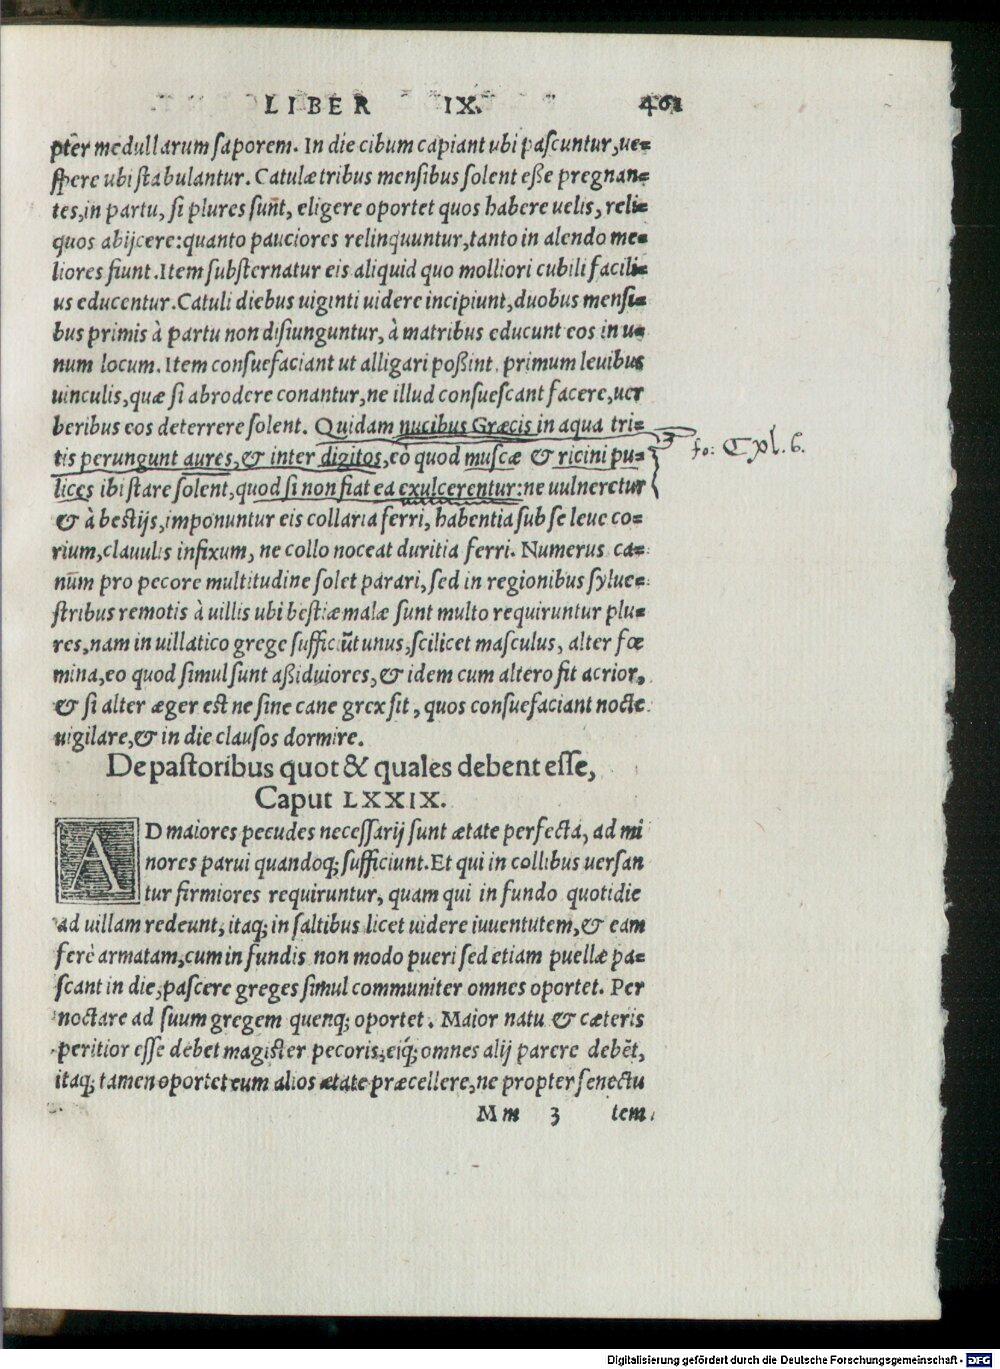 LIBER IX. 461
pter medullarum saporem. In die cibum capiant ubi pascuntur, ue=
spere ubi stabulantur. Catulæ tribus mensibus solent esse pregnan=
tes, in partu, si plures sunt, eligere oportet quos habere uelis, reli=
quos abijcere: quanto pauciores relinquuntur, tanto in alendo me=
liores fiunt. Item substernatur eis aliquid quo molliori cubili facili=
us educentur. Catuli diebus uiginti uidere incipiunt, duobus mensi=
bus primis à partu non disiunguntur, à matribus educunt eos in u=
num locum. Item consuefaciant ut alligari possint, primum leuibus
uinculis, quæ si abrodere conantur, ne illud consuescant facere, uer
beribus eos deterrere solent. Quidam nucibus Græcis in aqua tri=
tis perungunt aures, & inter digitos, eò quod muscæ & ricini pu=
fo: CXl. 6.
lices ibi stare solent, quod si non fiat ea exulcerentur: ne uulneretur
& à bestijs, imponuntur eis collaria ferri, habentia sub se leue co=
rium, clauulis infixum, ne collo noceat duritia ferri. Numerus ca=
nūm pro pecore multitudine solet parari, sed in regionibus sylue=
stribus remotis à uillis ubi bestiæ malæ sunt multo requiruntur plu=
res, nam in uillatico grege sufficiūt unus, scilicet masculus, alter fœ
mina, eo quod simul sunt assiduiores, & idem cum altero fit acrior,
& si alter æger est ne sine cane grex sit, quos consuefaciant nocte
uigilare, & in die clausos dormire.
De pastoribus quot & quales debent esse,
Caput LXXIX.
AD maiores pecudes necessarij sunt ætate perfecta, ad mi
nores parui quandoq; sufficiunt. Et qui in collibus uersan
tur firmiores requiruntur, quam qui in fundo quotidie
ad uillam redeunt, itaq; in saltibus licet uidere iuuentutem, & eam
ferè armatam, cum in fundis non modo pueri sed etiam puellæ pa=
scant in die, pascere greges simul communiter omnes oportet. Per
noctare ad suum gregem quenq; oportet. Maior natu & cæteris
peritior esse debet magister pecoris, eiq́; omnes alij parere debēt,
itaq; tamen oportet eum alios ætate præcellere, ne propter senectu
Mm 3 tem
Digitalisierung gefördert durch die Deutsche Forschungsgemeinschaft - DFG